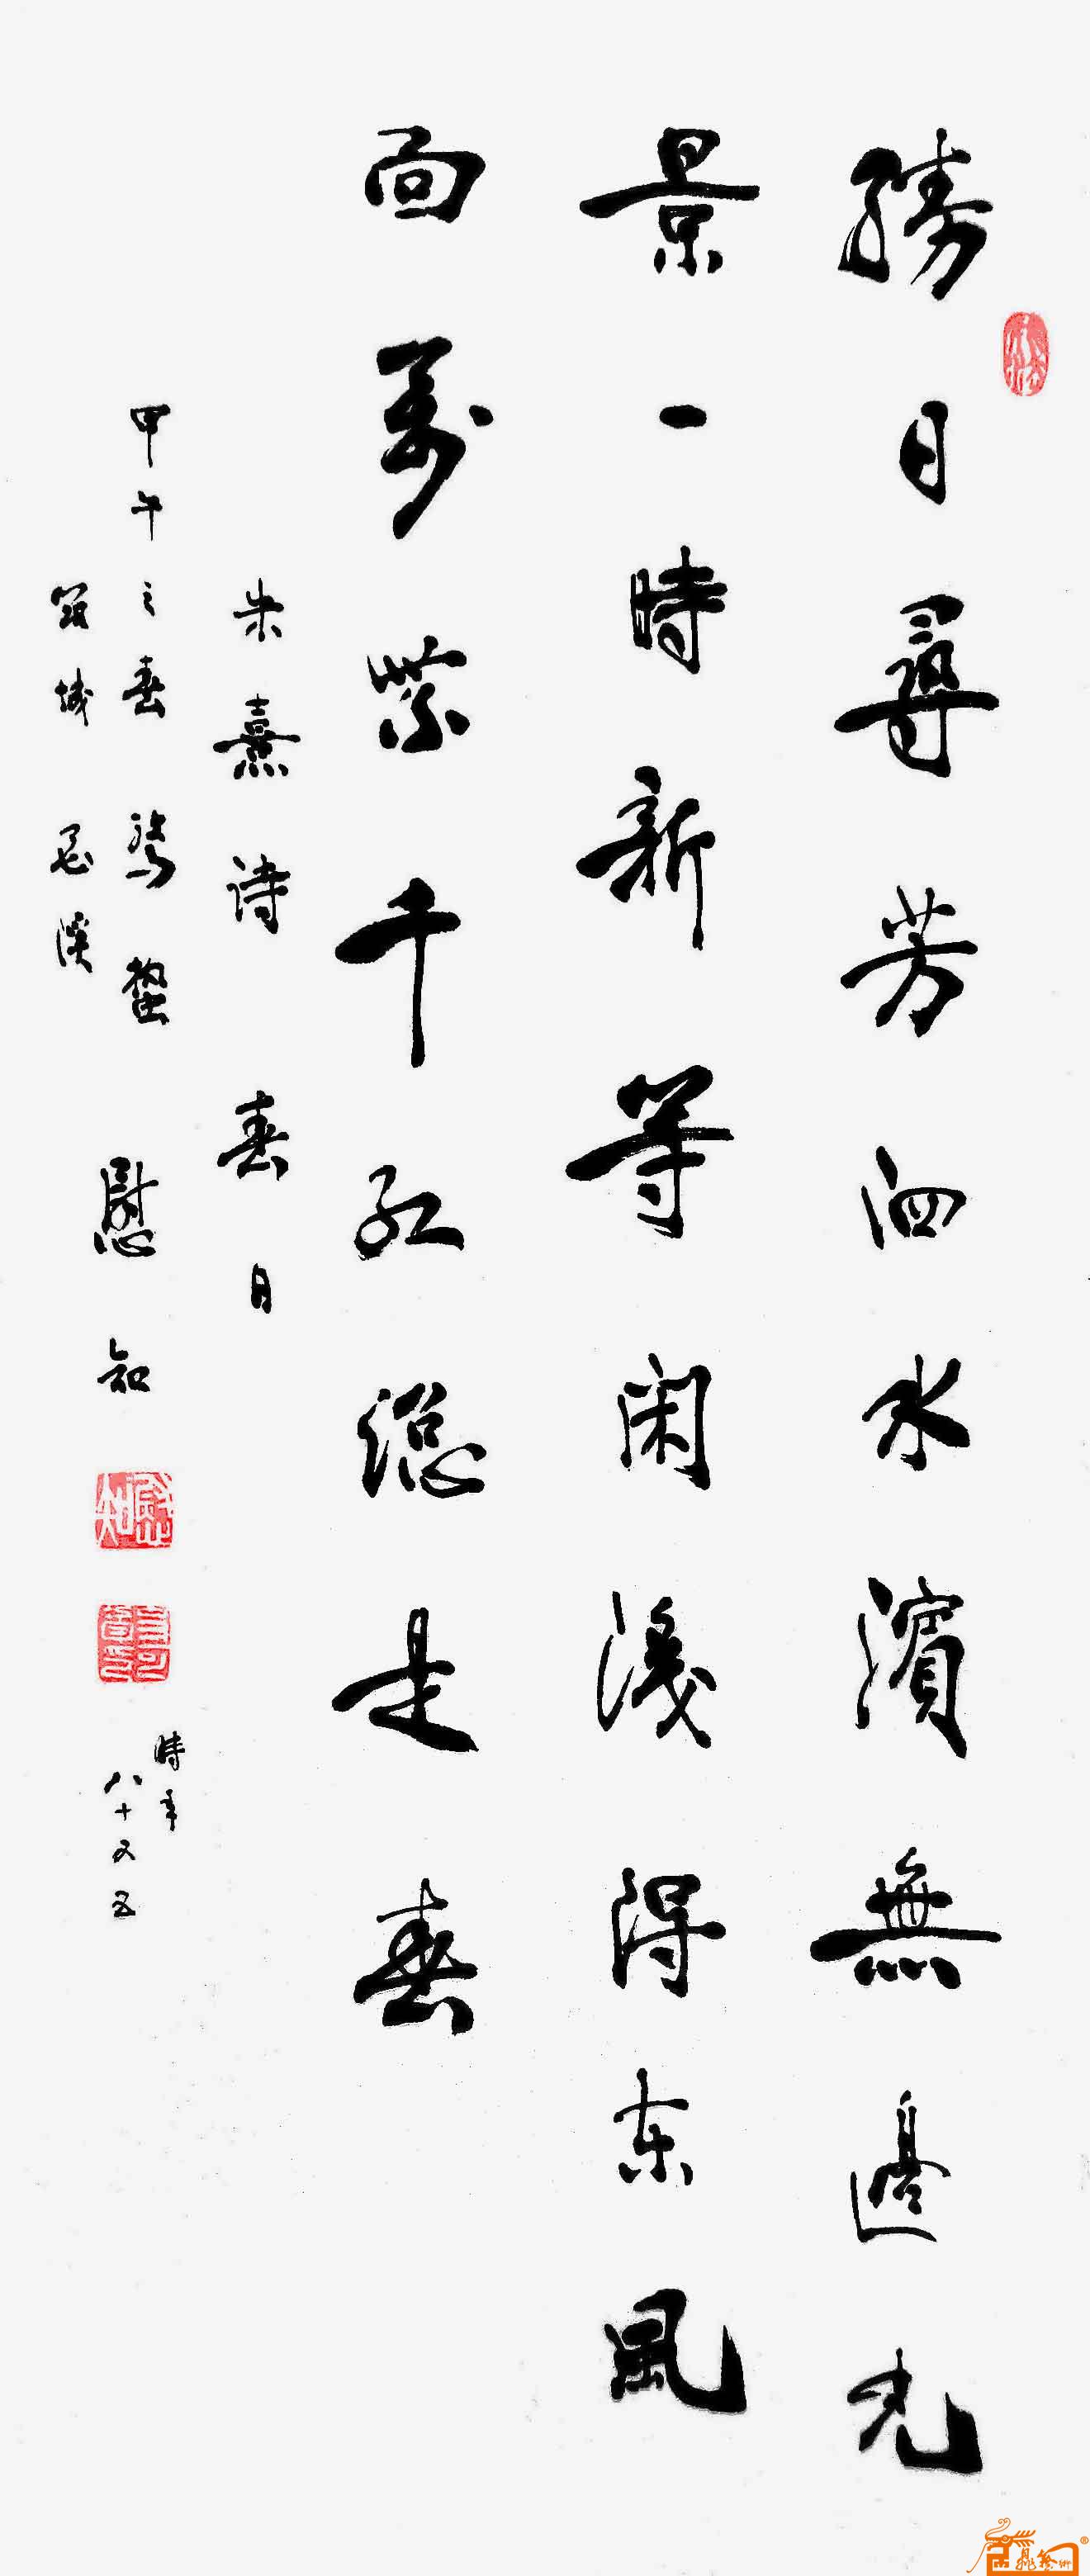 勝日尋芳泗水濱無邊光
景一時新等闲識得东風
面萬紫千红總是春
朱熹诗 春日
甲午之春 驚蟄 慰知
慰知
時年
八十又五